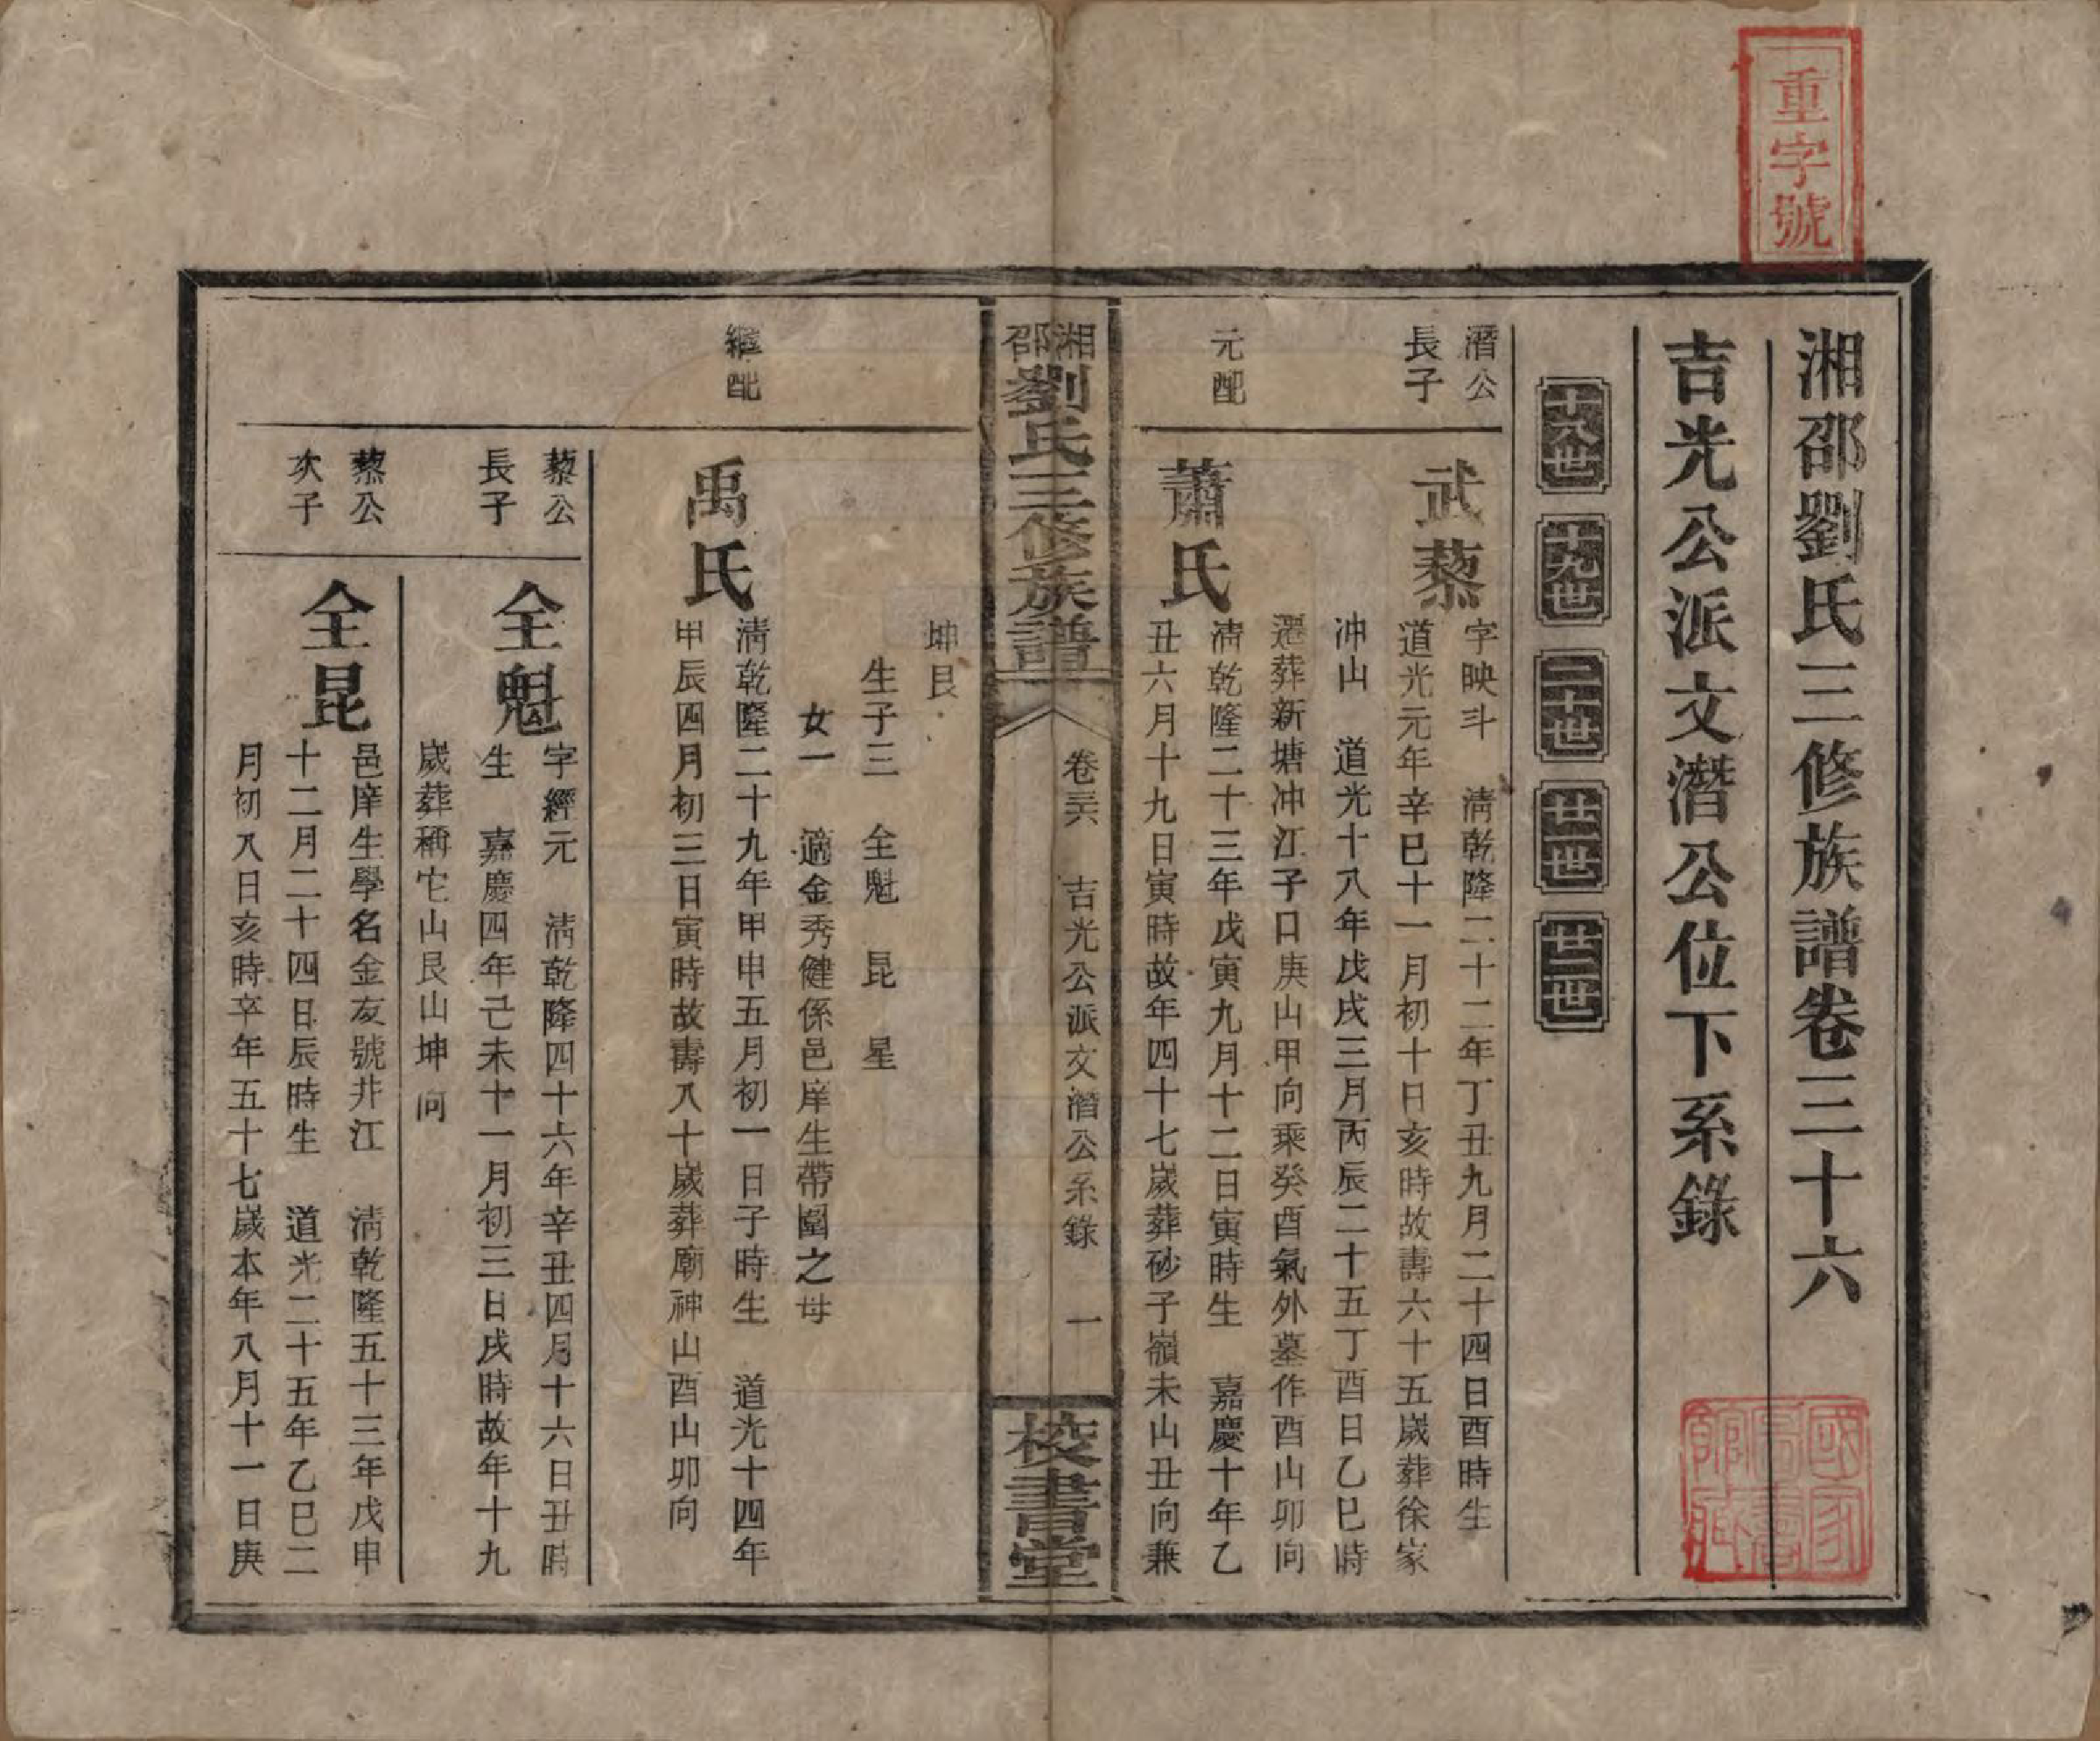 重字號
湘邵劉氏三修族譜卷三十六
吉光公派文潛公位下系錄
十八世 十九世 二十世 廿一世 廿二世
潛公
長子
武藜
字映斗 清乾隆二十二年丁丑九月二十四日酉時生
道光元年辛巳十一月初十日亥時故壽六十五歲葬徐家
冲山 道光十八年戊戌三月丙辰二十五丁酉日乙巳時
遷葬新塘冲江子口庚山甲向乘癸酉氣外墓作酉山卯向
元配
蕭氏
清乾隆二十三年戊寅九月十二日寅時生 嘉慶十年乙
丑六月十九日寅時故年四十七歲葬砂子嶺未山丑向兼
湘邵劉氏三修族譜
卷三六 吉光公派文潛公系錄 一
校書堂
坤艮
生子三 全魁 昆 星
女一 適金秀健係邑庠生帶圍之母
繼配
禹氏
清乾隆二十九年甲申五月初一日子時生 道光十四年
甲辰四月初三日寅時故壽八十歲葬廟神山酉山卯向
藜公
長子
全魁
字經元 清乾隆四十六年辛丑四月十六日丑時
生 嘉慶四年己未十一月初三日戌時故年十九
歲葬稱它山艮山坤向
藜公
次子
全昆
邑庠生學名金友號非江 清乾隆五十三年戊申
十二月二十四日辰時生 道光二十五年乙巳二
月初八日亥時卒年五十七歲本年八月十一日庚
國家圖書館藏